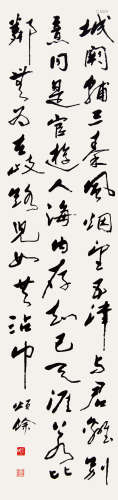 城阙辅三秦风烟望五津与君离别
意同是宦游人海内存知己天涯若比
邻无为在歧路儿女共沾巾